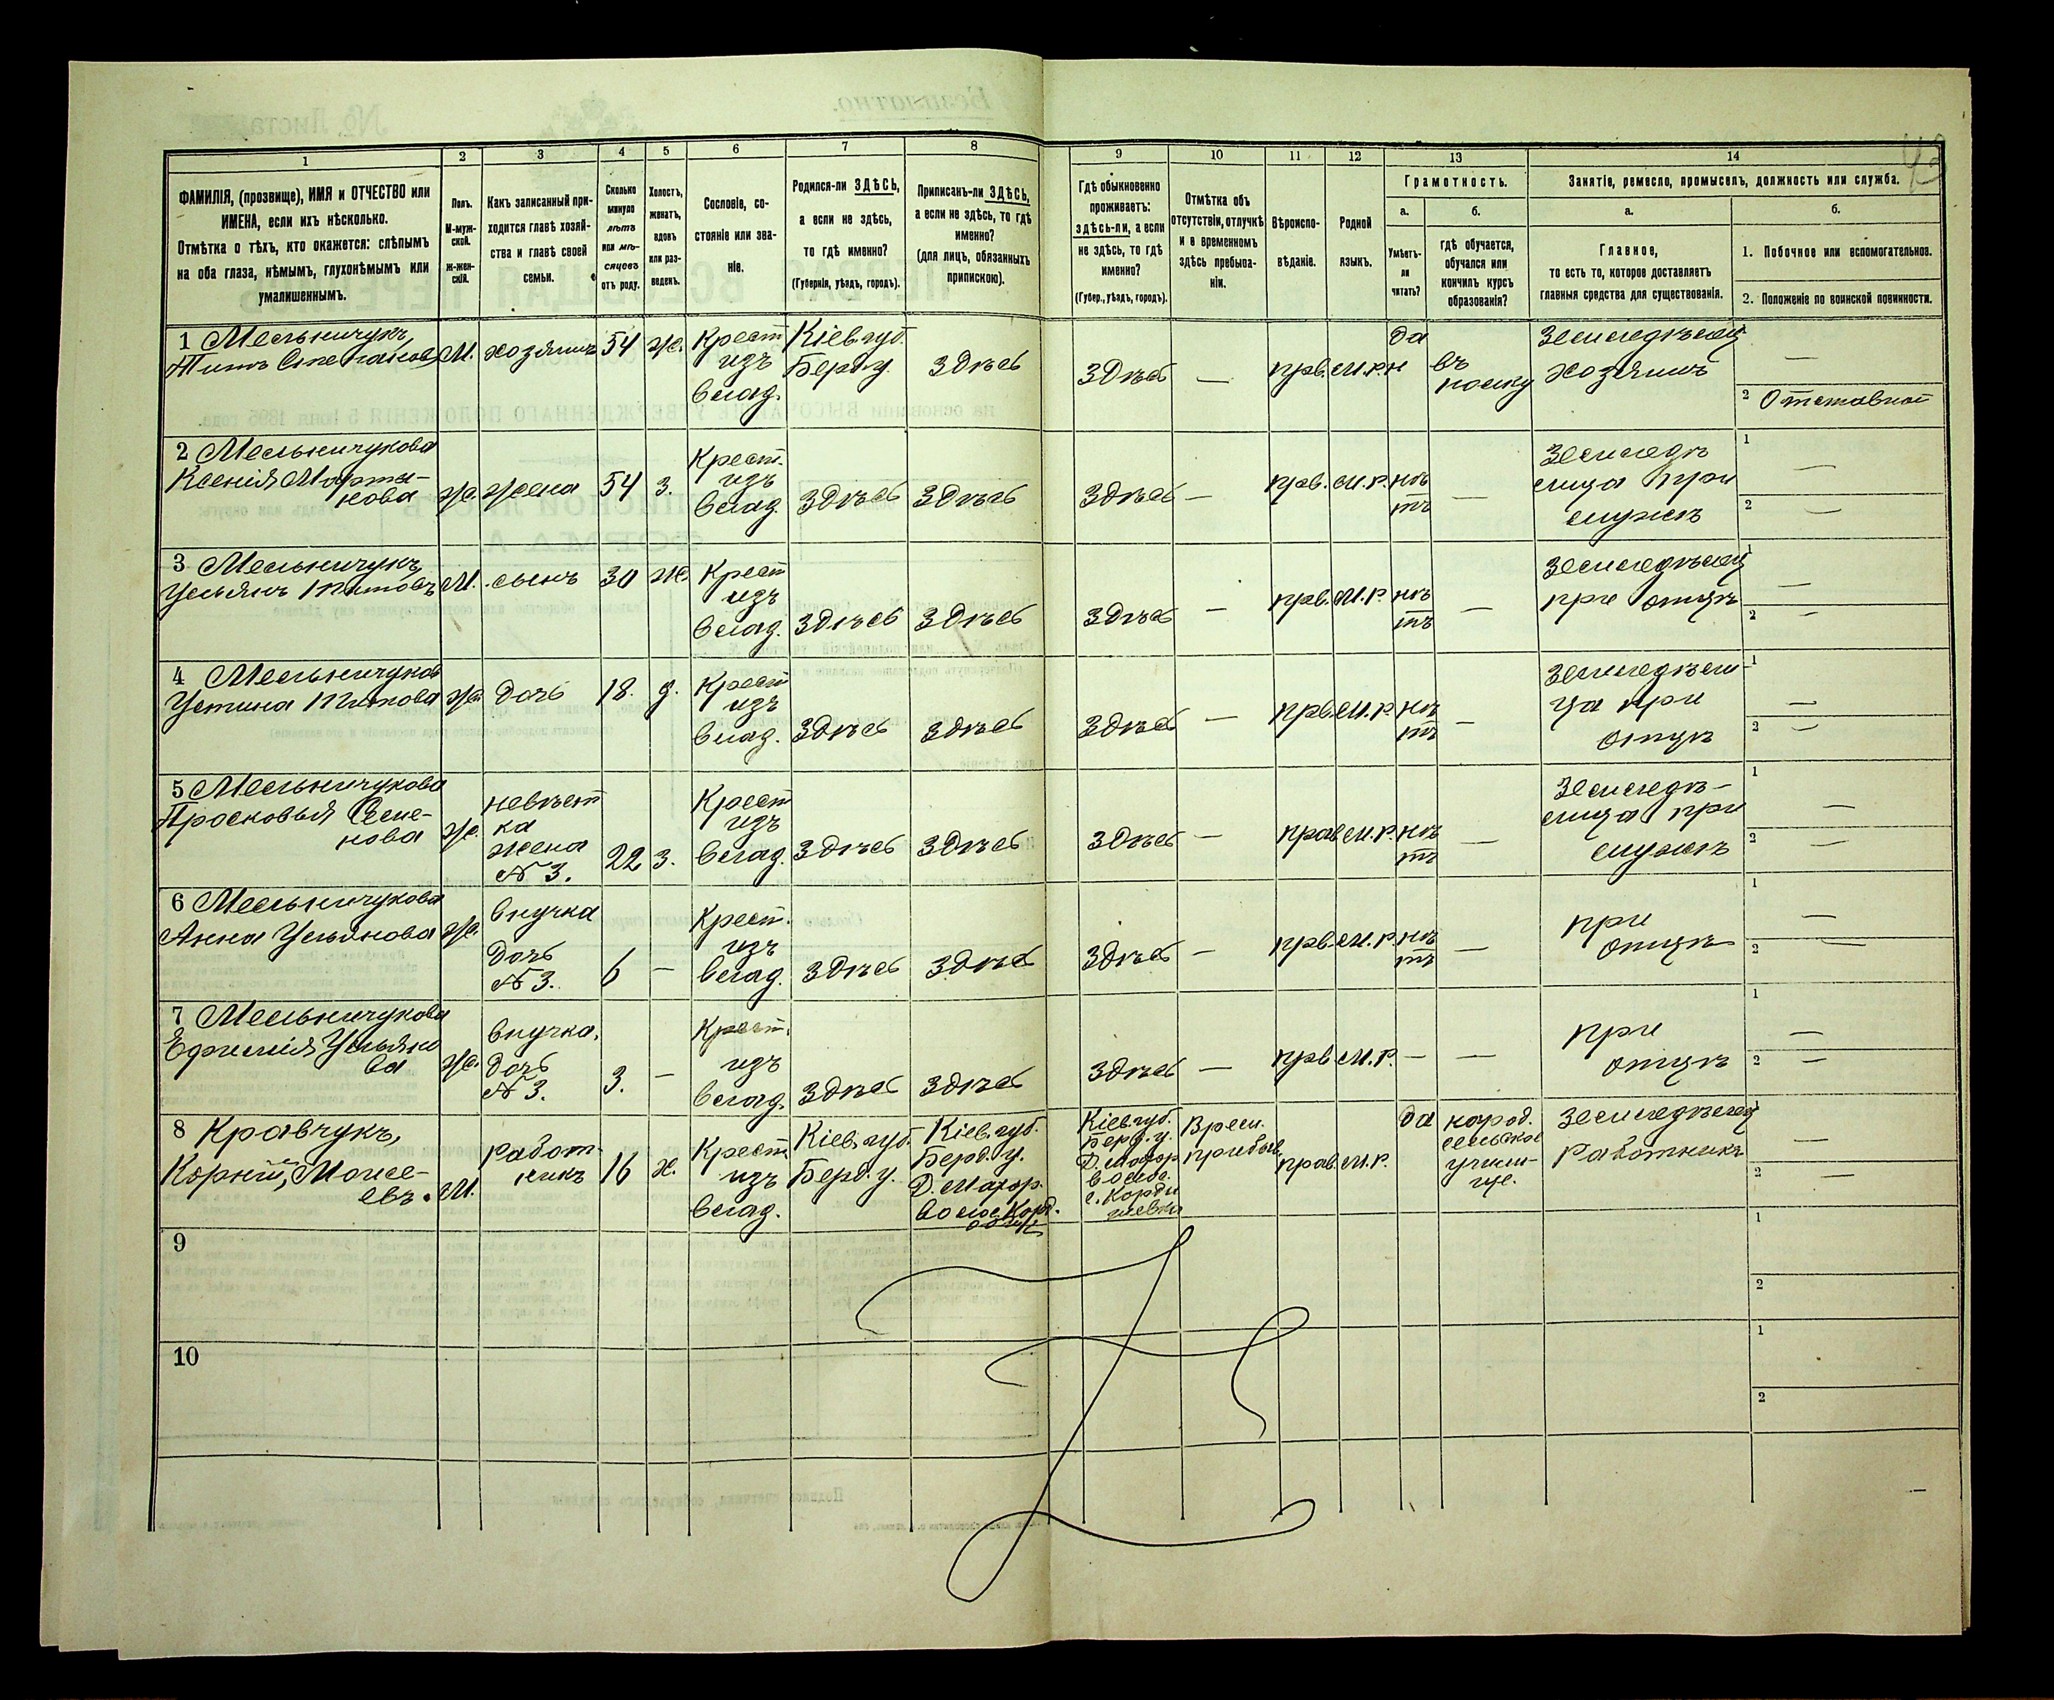 1 2 3 4 5 6 7 8 9 10 11 12 13 14
ФАМИЛІЯ, (прозвище), ИМЯ и ОТЧЕСТВО или
ИМЕНА, если ихъ нѣсколько.
Отмѣтка о тѣхъ, кто окажется: слѣпымъ
на оба глаза, нѣмымъ, глухонѣмымъ или
умалишеннымъ.
Полъ.
М-муж-
ской.
ж-жен-
скій.
Какъ записанный при-
ходится главѣ хозяй-
ства и главѣ своей
семьи.
Сколько
минуло
лѣтъ
или мѣ-
сяцевъ
отъ роду.
Холостъ,
женатъ,
вдовъ
или раз-
веденъ.
Сословіе, со-
стояніе или зва-
ніе.
Родился-ли ЗДѢСЬ,
а если не здѣсь,
то гдѣ именно?
(Губернія, уѣздъ, городъ).
Приписанъ-ли ЗДѢСЬ,
а если не здѣсь, то гдѣ
именно?
(для лицъ, обязанныхъ
припискою).
Гдѣ обыкновенно
проживаетъ:
здѣсь-ли, а если
не здѣсь, то гдѣ
именно?
(Губер., уѣздъ, городъ).
Отмѣтка объ
отсутствіи, отлучкѣ
и о временномъ
здѣсь пребыва-
ніи.
Вѣроиспо-
вѣданіе.
Родной
языкъ.
Грамотность.
а.
Умѣетъ-
ли
читать?
б.
гдѣ обучается,
обучался или
кончилъ курсъ
образованія?
Занятіе, ремесло, промыселъ, должность или служба.
а.
Главное,
то есть то, которое доставляетъ
главныя средства для существованія.
б.
1. Побочное или вспомогательное.
2. Положеніе по воинской повинности.
1 Мельничукъ,
Титъ Степановъ
М.
хозяинъ
54
ж.
Крест
изъ
влад.
Кіев. губ.
Берд. у.
Здѣсь
Здѣсь
—
прв.
м.р.
да
въ
полку
Земледѣлец
хозяинъ
—
2 Отставной
2 Мельничукова
Ксенія Марты-
нова
ж.
жена
54
з.
Крест.
изъ
влад.
Здѣсь
Здѣсь
Здѣсь
—
прв.
м.р.
нѣ
тъ
—
Земледѣ
лица при
мужѣ
1 —
2 —
3 Мельничукъ,
Ульянъ Титовъ
М.
сынъ
30
ж.
Крест
изъ
влад.
Здѣсь
Здѣсь
Здѣсь
—
прв.
м.р.
нѣ
тъ
—
Земледѣлец
при отцѣ
1 —
2 —
4 Мельничуков
Устина Титова
ж.
дочь
18.
д.
Крест
изъ
влад.
Здѣсь
Здѣсь
Здѣсь
—
прв.
м.р.
нѣ
тъ
—
Земледѣли
ца при
отцѣ
1 —
2 —
5 Мельничукова
Просковья Семе-
нова
ж.
невѣст
ка
жена
№ 3.
22
з.
Крест
изъ
влад.
Здѣсь
Здѣсь
Здѣсь
—
прав
м.р.
нѣ
тъ
—
Земледѣ-
лица при
мужѣ
1 —
2 —
6 Мельничукова
Анна Ульянова
ж.
внучка
дочь
№ 3.
6
—
Крест.
изъ
влад.
Здѣсь
Здѣсь
Здѣсь
—
прв.
м.р.
нѣ
тъ
—
при
отцѣ
1 —
2 —
7 Мельничукова
Ефимія Ульяно
ва
ж.
внучка.
дочь
№ 3.
3.
—
Крест.
изъ
влад.
Здѣсь
Здѣсь
Здѣсь
—
прв.
м.р.
—
—
при
отцѣ
1 —
2 —
8 Кравчукъ,
Корній, Моисе-
евъ.
М.
работ
никъ
16
х.
Крест.
изъ
влад.
Кіев. губ.
Берд. у.
Кіев. губ.
Берд. у.
Д. Махор.
волос. Корд.
общ.
Кіев. губ.
Берд. у.
Д. Махор
волос.
с. Корди
шевка
Врем.
пребыв.
прав.
м.р.
да
народ.
сельское
учили-
ще.
Земледѣлец
работникъ
1 —
2 —
9
1
2
10
1
2